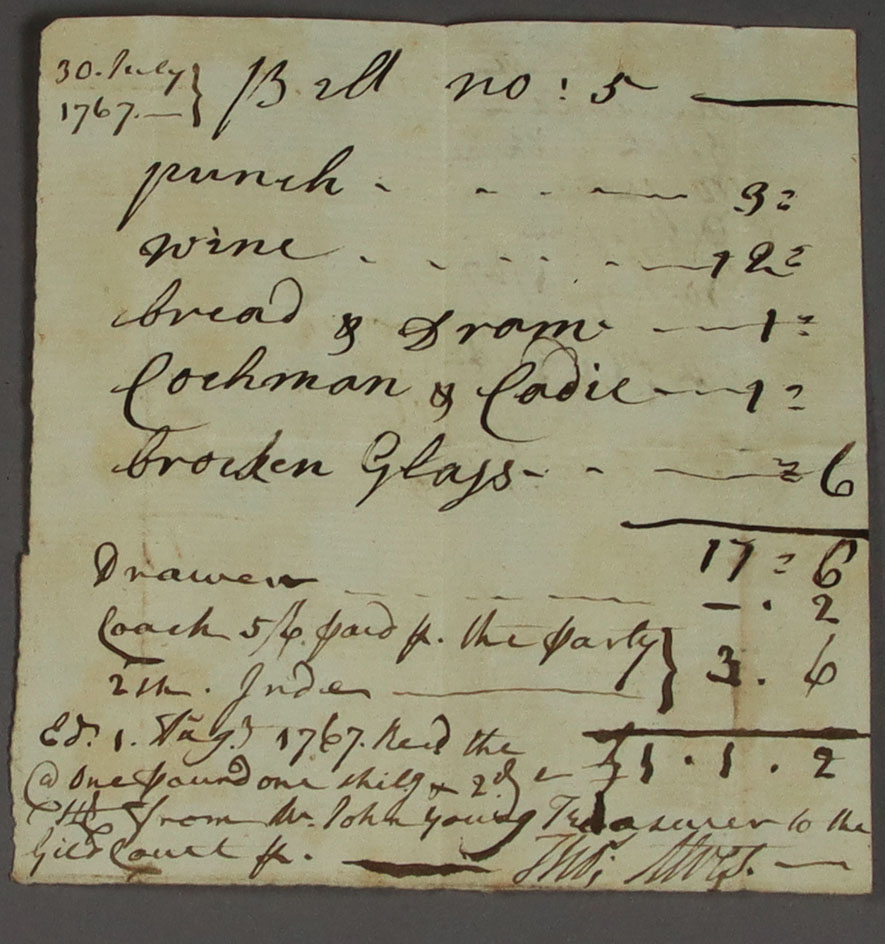 30. July
1767.— } Bill no: 5 —
punch - - - - — 3=
wine - - - - — 12=
bread & Dram — 1=
Cochman & Cadie — 1=
brocken Glass - - — = 6
17 = 6
Drawer - - - - — . 2
Coach 5/6. paid p. the party } 3 . 6
2sh. —
Ed. 1. Augt. 1767. Recd the £1 . 1 . 2
One pound one shilg & 2d
from Mr. John Young Treasurer to the
Gild Court p. — Tho: